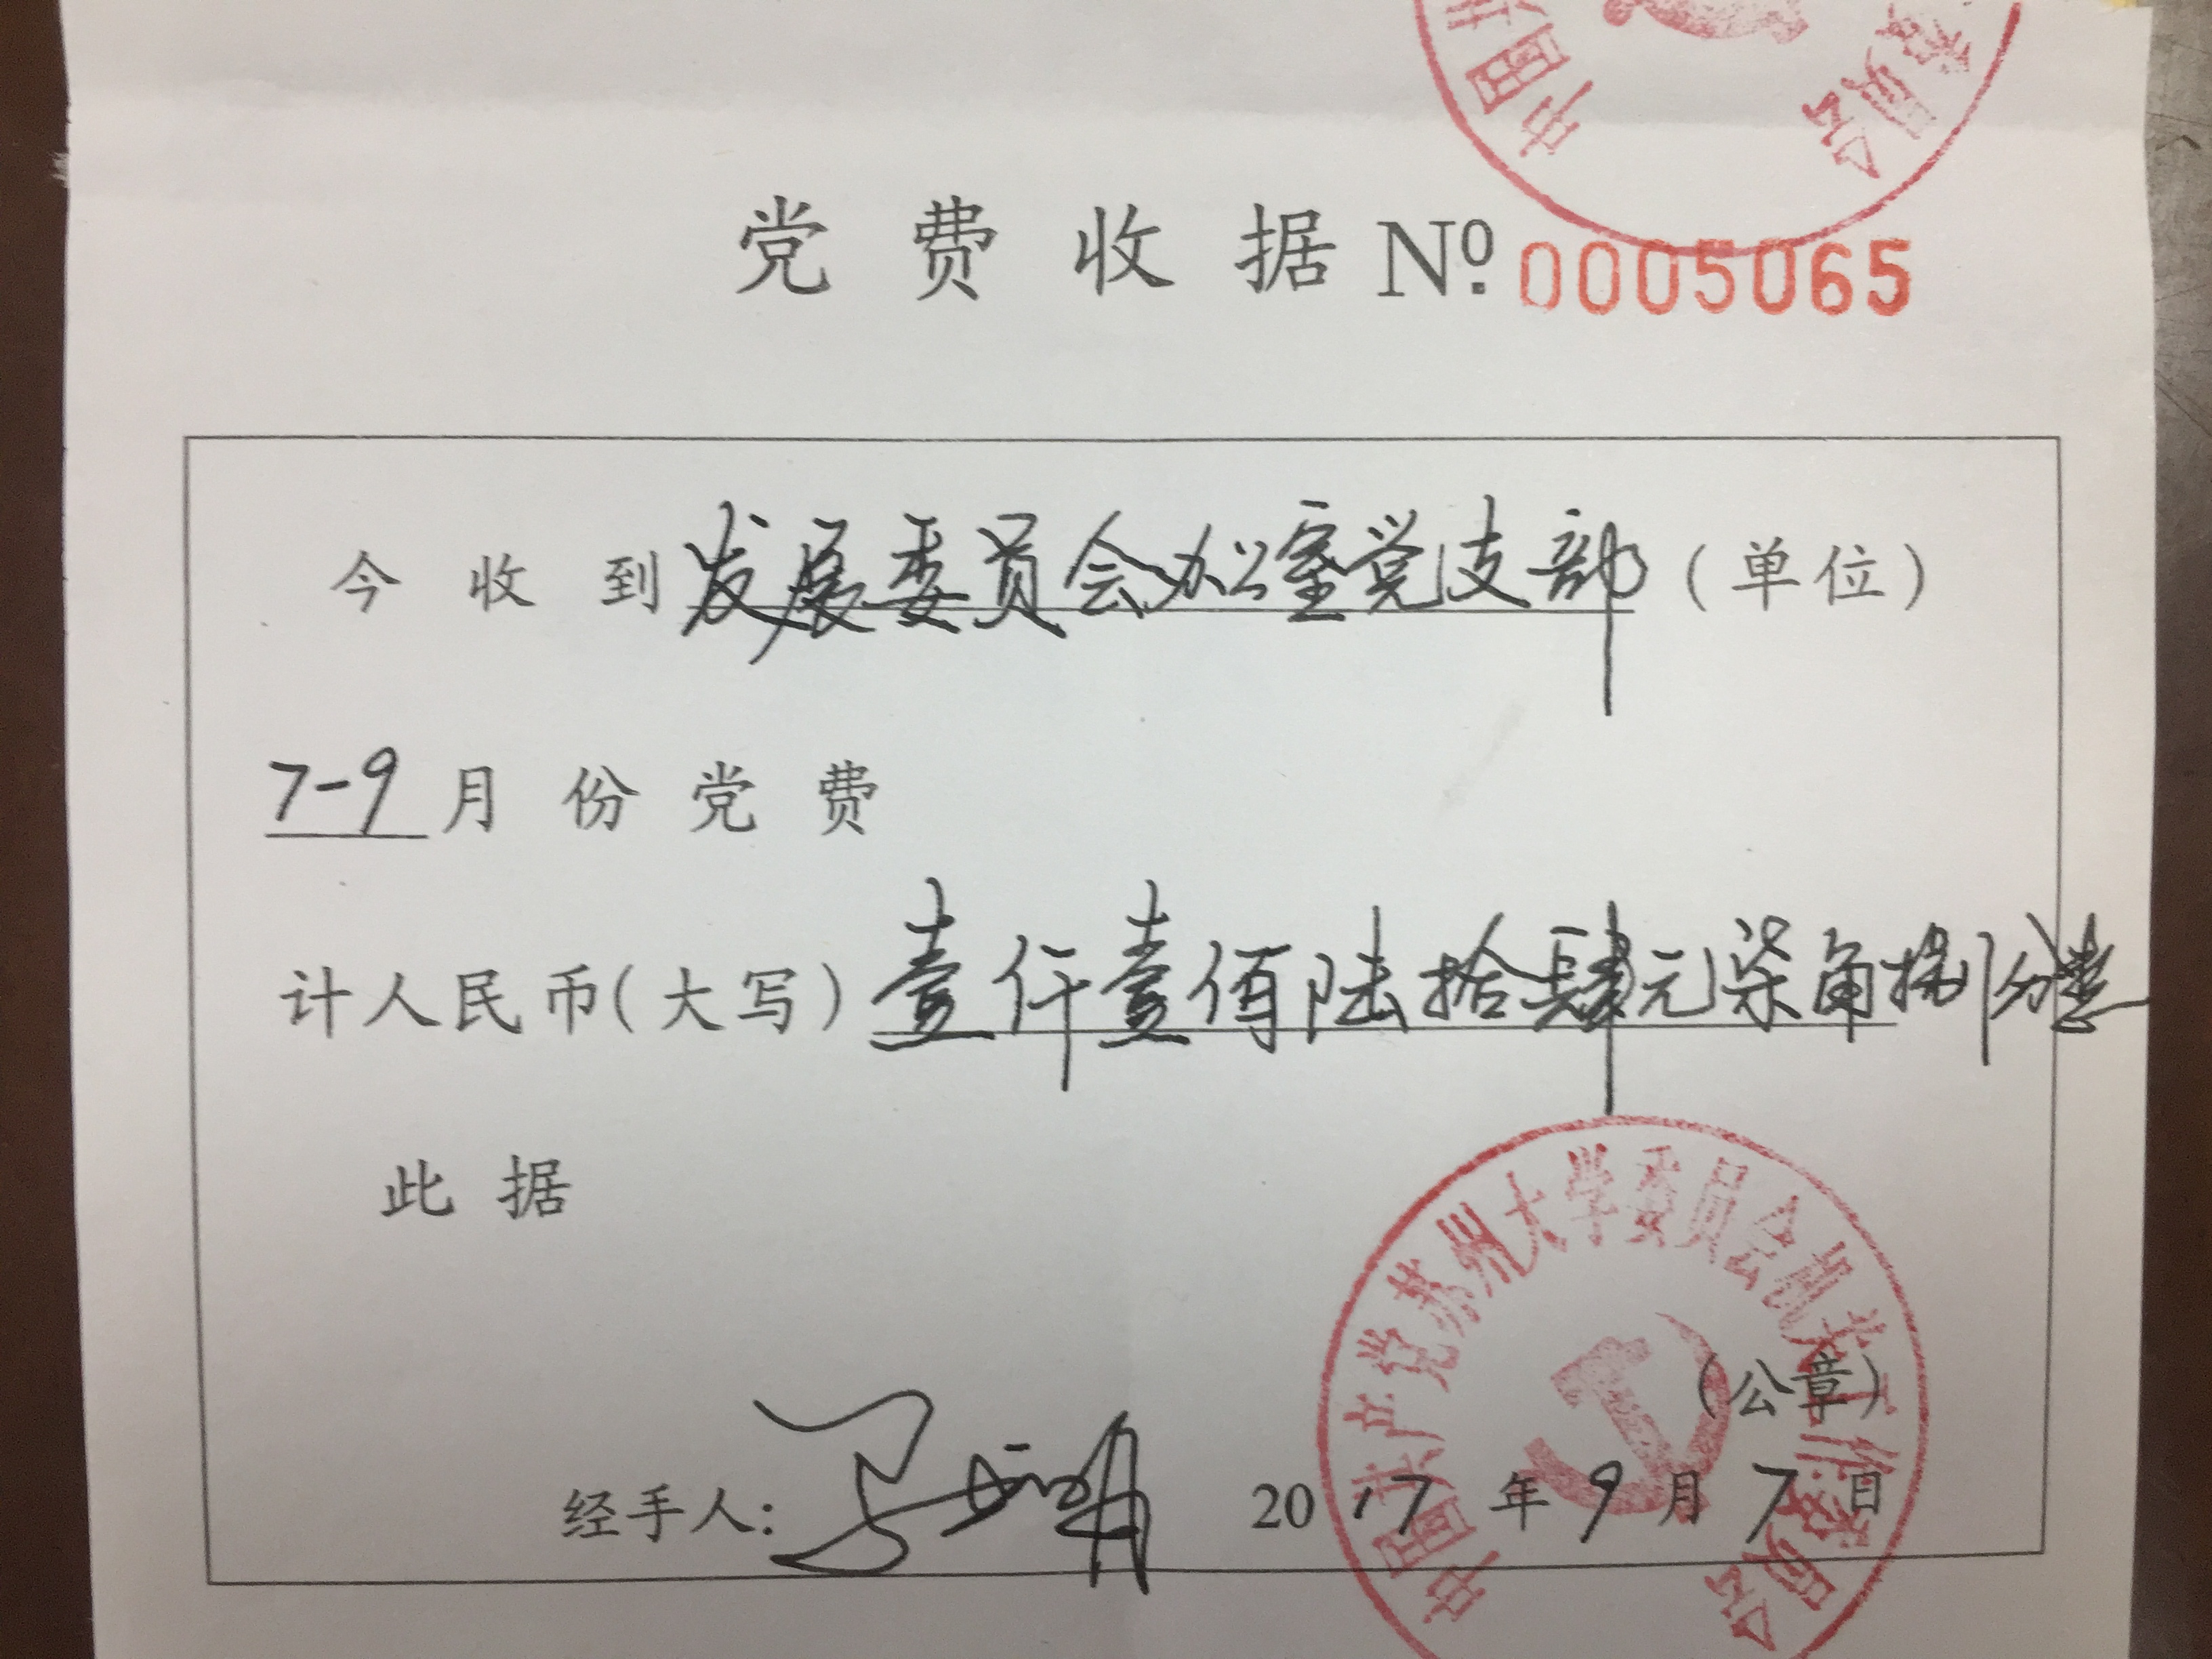 中国共
委员会
党费收据 Nº 0005065
今收到发展委员会办公室党支部(单位)
7-9月份党费
计人民币(大写)壹仟壹佰陆拾肆元柒角捌分整
此据
中国共产党苏州大学委员会机关工作委员会
(公章)
经手人: 2017年9月7日